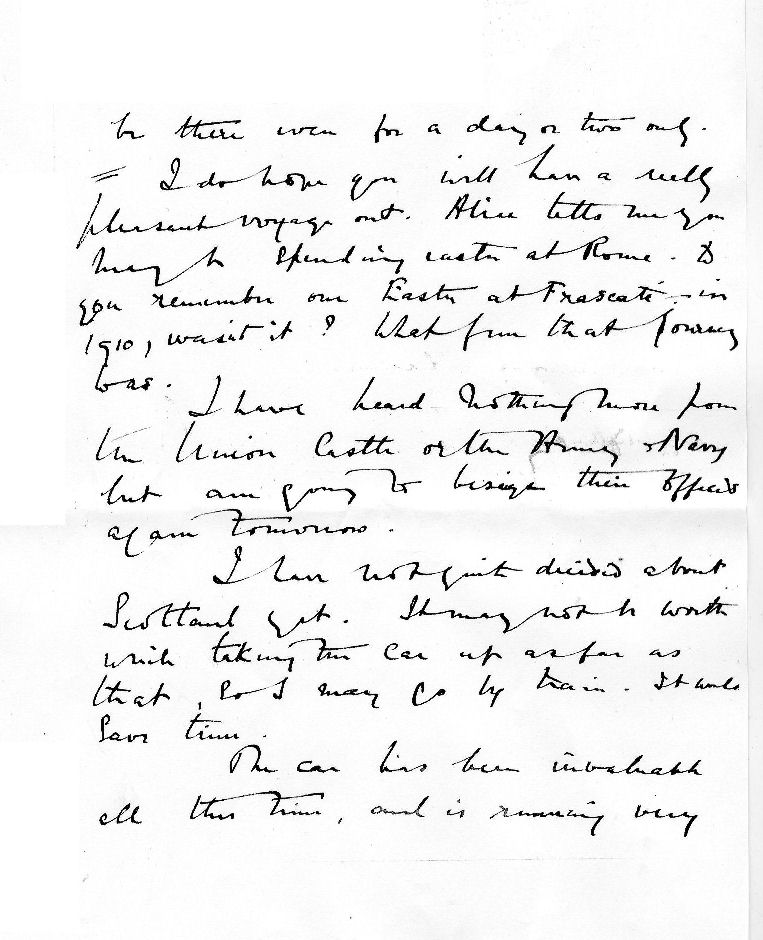 be there even for a day or two only.
= I do hope you will have a really
pleasant voyage out. Alice tells me you
may be spending easter at Rome. Do
you remember our Easter at Frascati - in
1910, wasn't it? What fun that journey
was.
I have heard nothing more from
the Union Castle or the Army & Navy
but am going to besiege their offices
again tomorrow.
I have not quite decided about
Scotland yet. It may not be worth
while taking the car up as far as
that, so I may go by train. It would
save time.
The car has been invaluable
all this time, and is running very